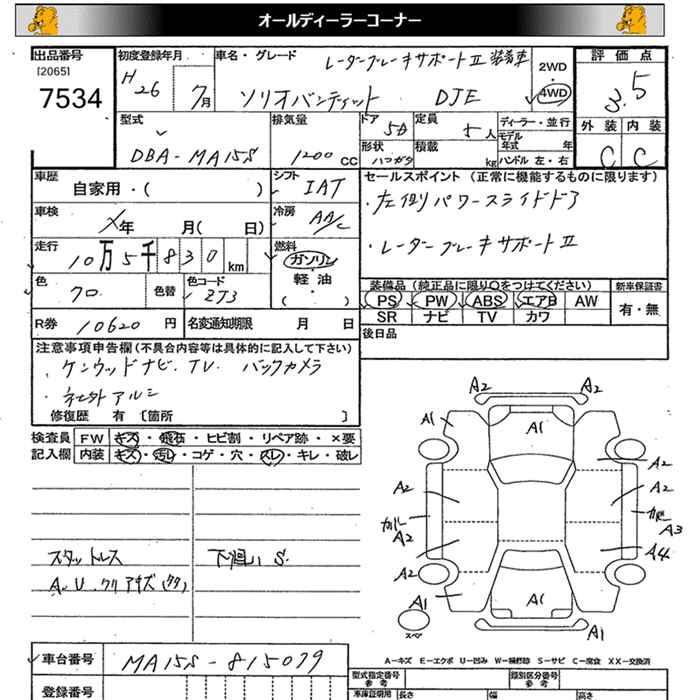 オールディーラーコーナー
出品番号 初度登録年月 車名・グレード レーダーブレーキサポートⅡ装着車 2WD 評価点
[2065]
7534 H26 7月 ソリオバンディット DJE 4WD 3.5
型式 排気量 ドア 5D 定員 5人 ディーラー・並行 外装 内装
モデル年式 年
DBA-MA15S 1200cc 形状 ハコガタ 積載 kg ハンドル 左・右 C C
車歴 自家用・( ) シフト IAT セールスポイント (正常に機能するものに限ります)
車検 年 月( 日) 冷房 AAC ・左側リパワースライドドア
走行 10万5千830km 燃料 ガソリン ・レーダーブレーキサポートⅡ
軽油
・( )
色 クロ 色替 色コード ZJ3 装備品(純正品に限り○をつけてください) 新車保証書
PS PW ABS エアB AW 有・無
R券 10620円 名変通知期限 月 日 SR ナビ TV カワ
後日品
注意事項申告欄(不具合内容等は具体的に記入して下さい)
・ケンウッドナビ.TV.バックカメラ
・社外アルミ
修復歴 有 [箇所 ]
検査員記入欄 FW キズ・飛石・ヒビ割・リペア跡・×要
内装 キズ・汚レ・コゲ・穴・スレ・キレ・破レ
A2 A2
A1 A1
A2 A2
A2 A2
カバー カバー A3
A2 A4
A2
A1 A1
スペア A1
スタットレス 下廻りS.
A.U.クリアキズ(タタ)
車台番号 MA15S-815079
A-キズ E-エクボ U-凹み W-補修跡 S-サビ C-腐食 XX-交換済
登録番号 型式指定番号 参考 類別区分番号 参考
車庫証明用 長さ 幅 高さ